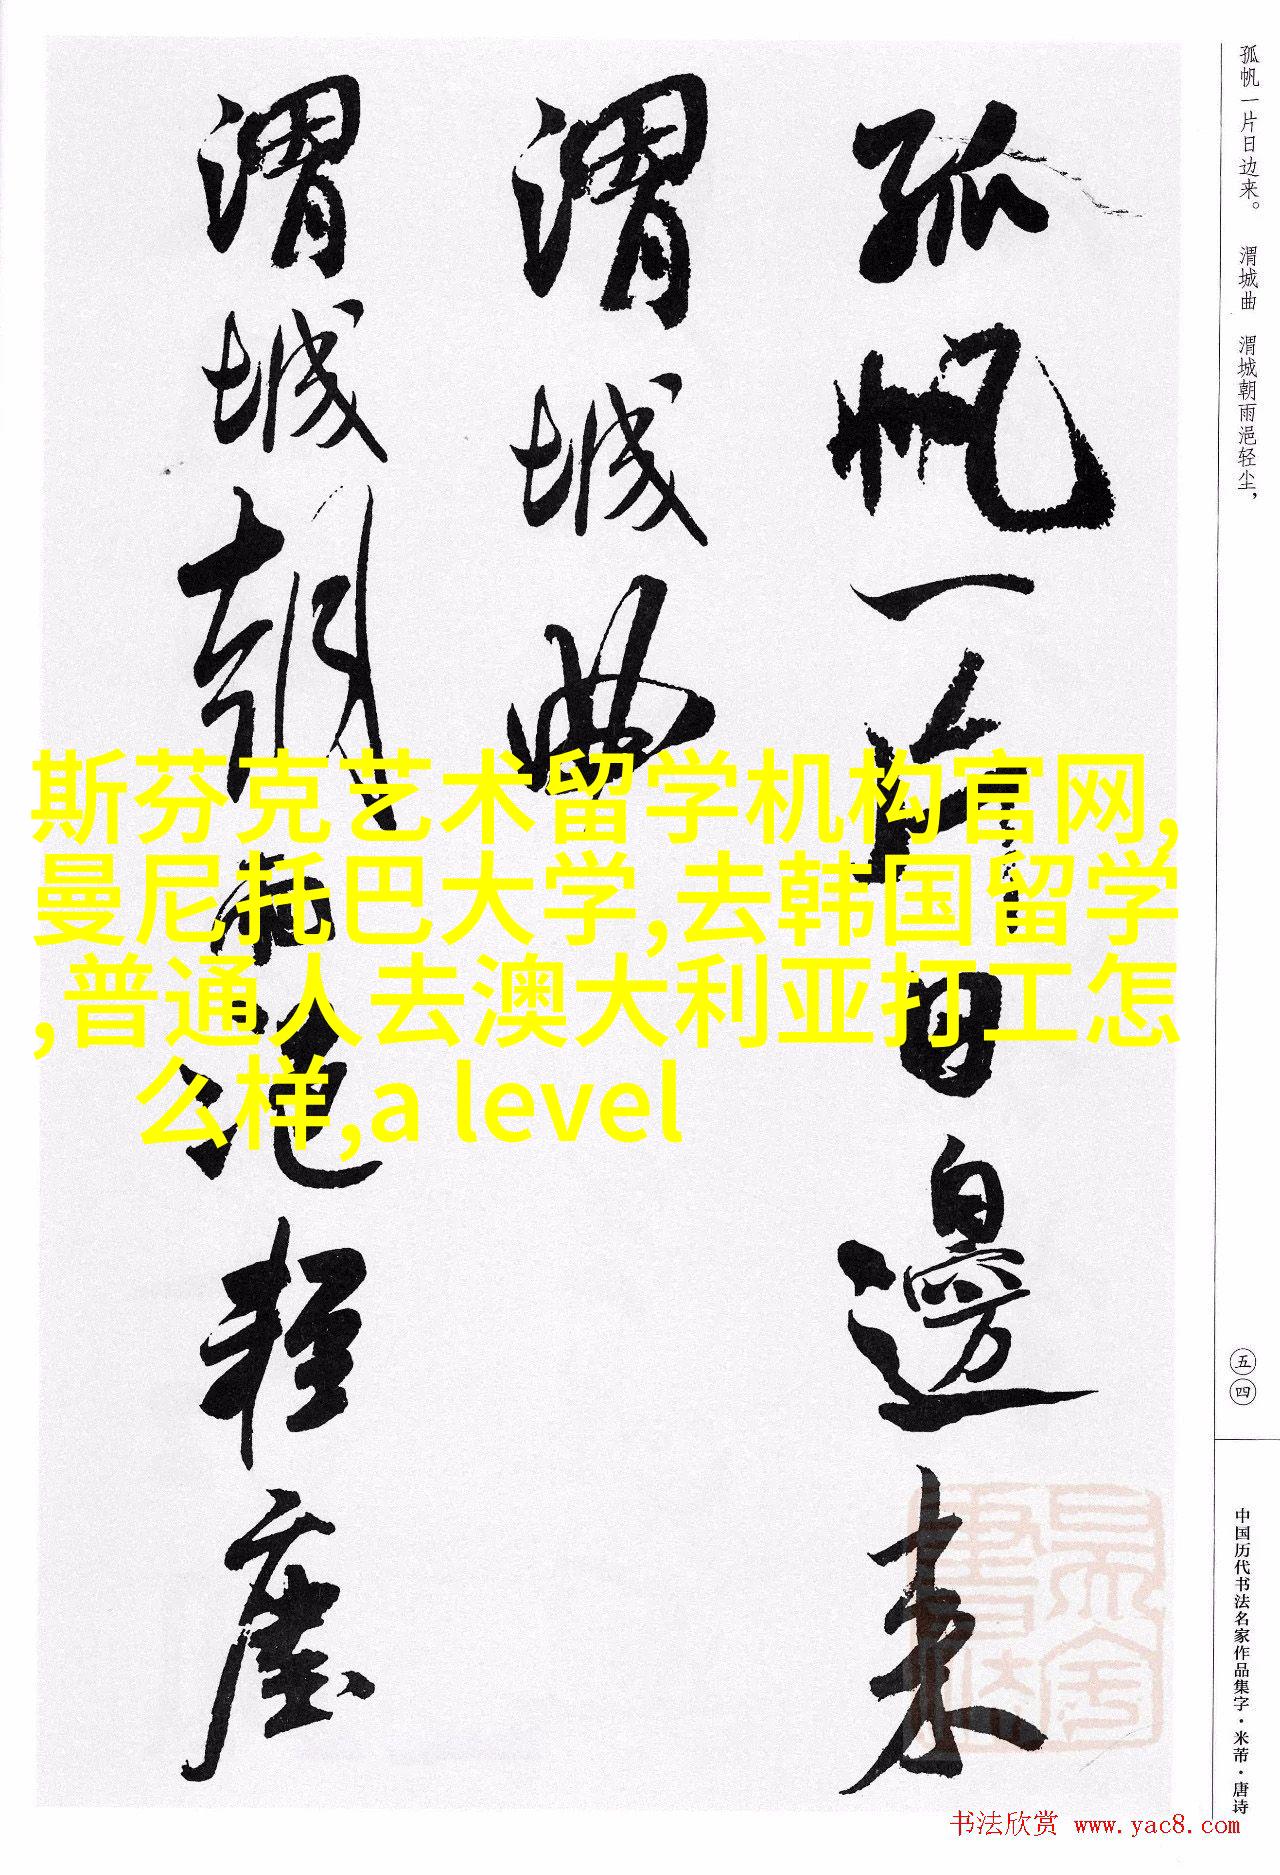 孤帆一片日边来。 渭城曲 渭城朝雨浥轻尘，
孤帆一片日邊来
渭城曲
渭城朝雨浥轻塵
斯芬克艺术留学机构官网,
曼尼托巴大学,去韩国留学
,普通人去澳大利亚打工怎
么样,a level
五四
中国历代书法名家作品集字·米芾·唐诗
书法欣赏 www.yac8.com